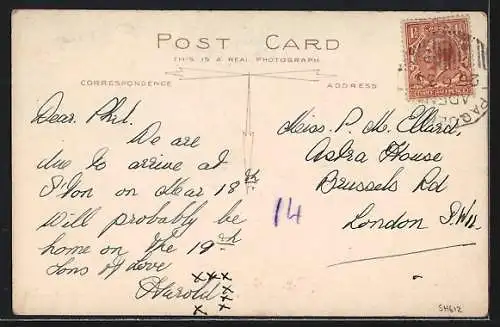 POST CARD
THIS IS A REAL PHOTOGRAPH
CORRESPONDENCE
ADDRESS
Dear Phil.
We are
due to arrive at
S'ton on Mar 18th
will probably be
home on the 19th
Tons of Love
Harold
xxx
x
xx
x
x
Miss. P. M. Ellard,
Astra House
Brussels Rd
London S.W.11.
14
PAQUEBOT
ADEN
SH612